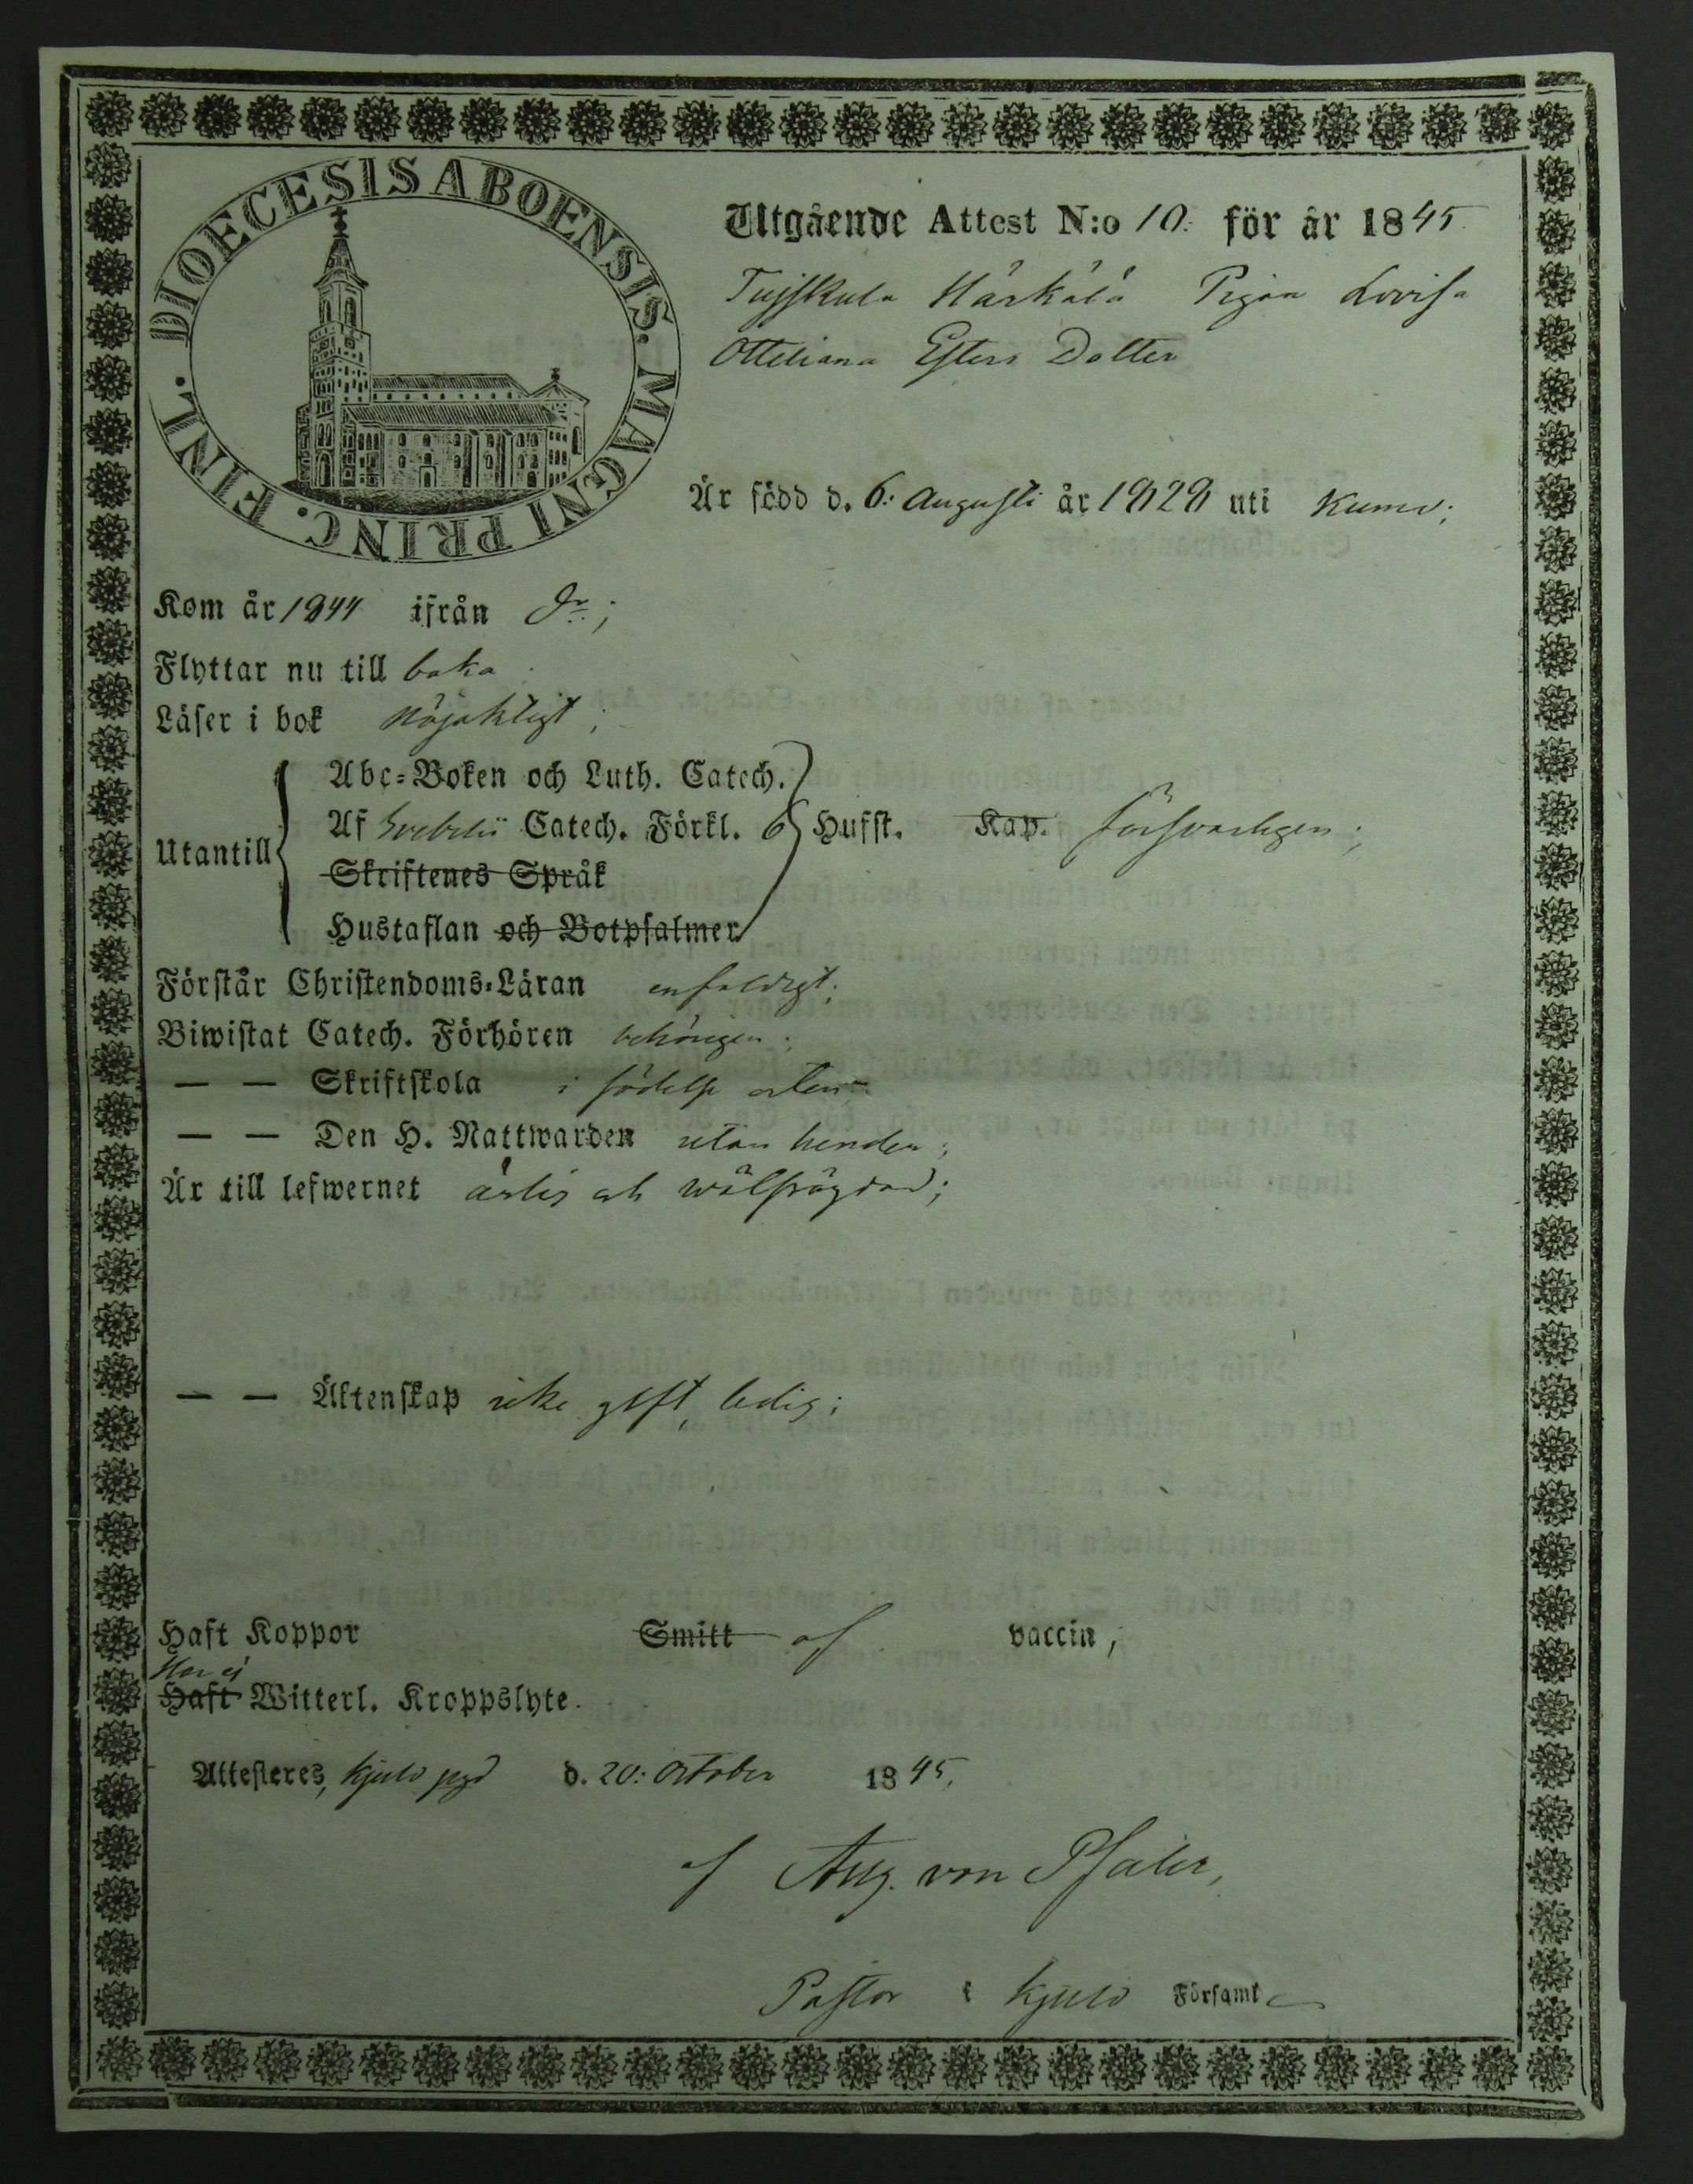 DIOECESIS ABOENSIS. MAGNI PRINC. FINL.
Utgående Attest N:o 10. för år 1845
Härkälä Pigan Lovisa
Dotter
Är född d. 6: Augusti år 1828 uti Kumo;
Kom år 1844 ifrån Do;
Flyttar nu till baka
Läser i bok nöjaktigt;
Utantill
Abc-Boken och Luth. Catech.
Af Svebelii Catech. Förkl. 6 Hufst. Kap. försvarligen;
Skriftenes Språk
Hustaflan och Botpsalmer
Förstår Christendoms-Läran enfaldigt;
Biwistat Catech. Förhören behörigen;
— — Skriftskola i födelse orten
— — Den H. Nattwarden utan hinder;
Är till lefwernet ärlig och wälfrägdad;
— — Äktenskap icke gift, ledig;
Haft Koppor Smitt af vaccin,
Har ej
Haft Witterl. Kroppslyte.
Attesteres, Kjulo pgd d. 20: October 1845.
af Aug. von Pfaler,
Pastor i Kjulo Församl